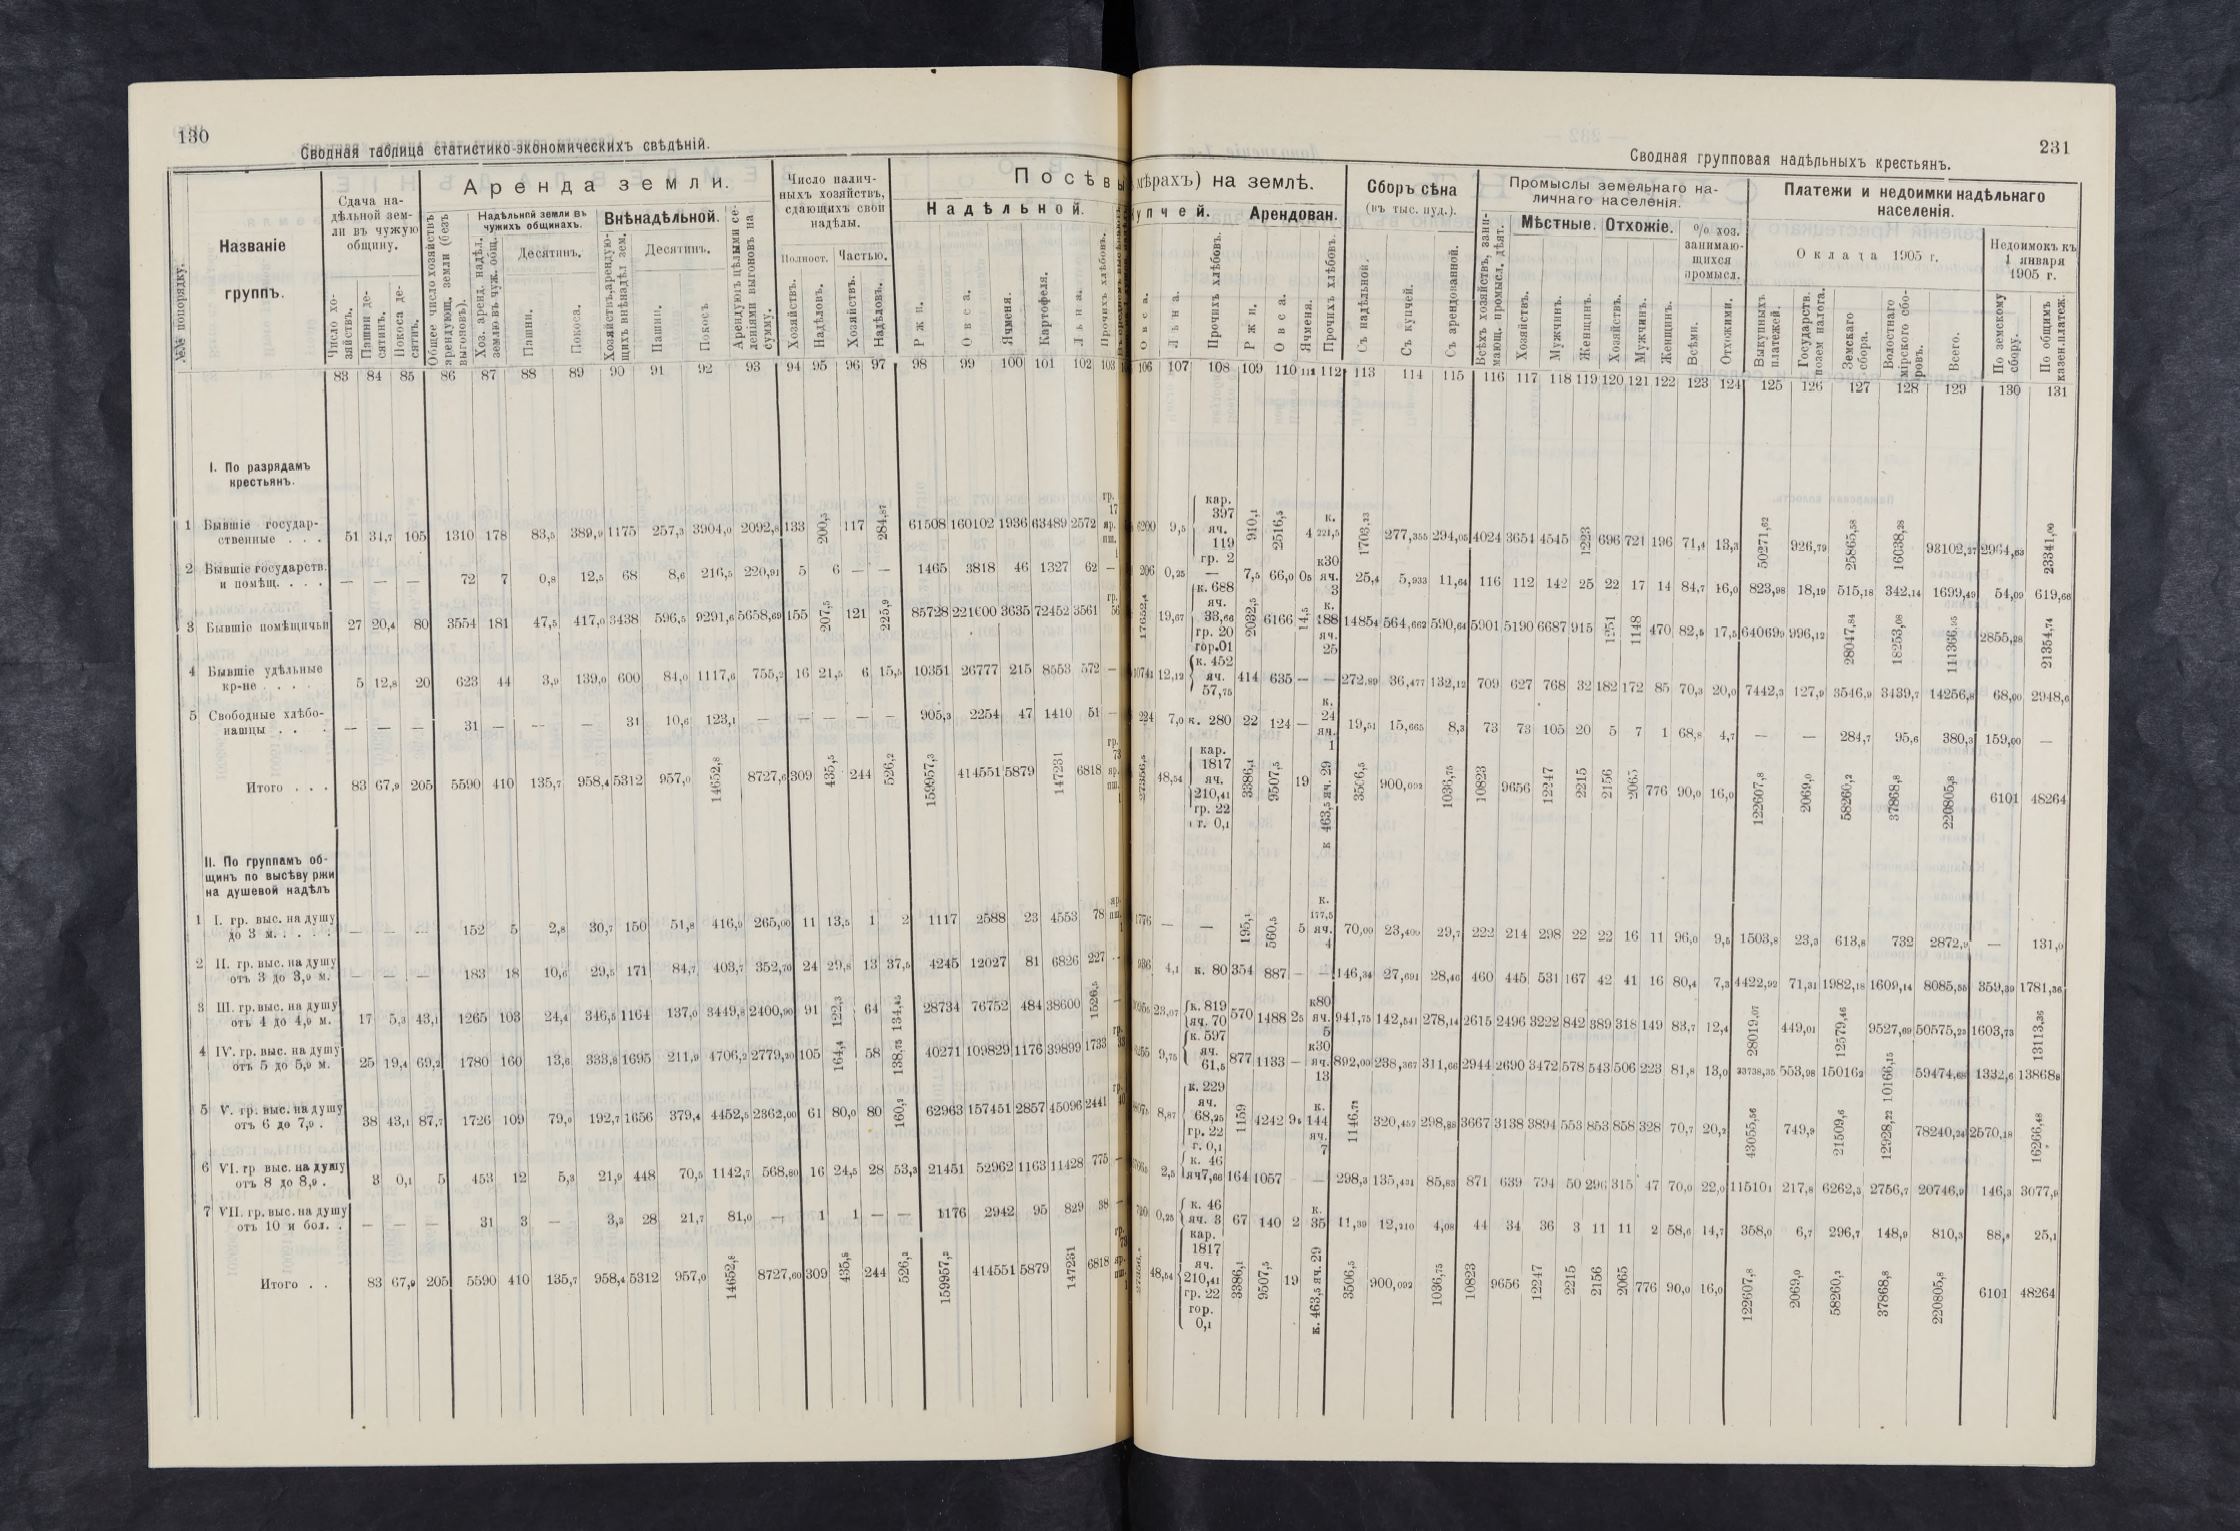 130
Сводная таблица статистико-экономическихъ свѣдѣній.
№№ по порядку.
Названіе группъ.
Сдача на-
дѣльной зем-
ли въ чужую
общину.
Число хо-
зяйствъ.
Пашни де-
сятинъ.
Покоса де-
сятинъ.
Аренда земли.
Общее число хозяйствъ
арендующ. земли (безъ
выгоновъ).
Надѣльной земли въ
чужихъ общинахъ.
Хоз. аренд. надѣл.
землю въ чуж. общ.
Десятинъ.
Пашни.
Покоса.
Внѣнадѣльной.
Хозяйствъ, арендую-
щихъ внѣнадѣл зем.
Десятинъ.
Пашни.
Покосъ
Арендуютъ цѣлыми се-
леніями выгоновъ на
сумму.
Число налич-
ныхъ хозяйствъ,
сдающихъ свои
надѣлы.
Полност.
Частью.
Хозяйствъ.
Надѣловъ.
Хозяйствъ.
Надѣловъ.
Посѣвы
Надѣльной.
Ржи.
Овса.
Ячменя.
Картофеля.
Льна.
Прочихъ хлѣбовъ.
83 84 85 86 87 88 89 90 91 92 93 94 95 96 97 98 99 100 101 102 103
I. По разрядамъ
крестьянъ.
1 Бывшіе государ-
ственные . . . 51 34,7 105 1310 178 83,5 389,9 1175 257,3 3904,0 2092,8 133 200,5 117 284,87 61508 160102 1936 63489 2572 гр. 17 яр. пш. 1
2 Бывшіе государств.
и помѣщ. . . . — — — 72 7 0,8 12,5 68 8,6 216,5 220,91 5 6 — — 1465 3818 46 1327 62 —
3 Бывшіе помѣщичьи 27 20,4 80 3554 181 47,5 417,0 3438 596,5 9291,6 5658,69 155 207,5 121 225,9 85728 221600 3635 72452 3561 гр. 56
4 Бывшіе удѣльные
кр-не . . . . 5 12,8 20 623 44 3,9 139,0 600 84,0 1117,6 755,2 16 21,5 6 15,5 10351 26777 215 8553 572 —
5 Свободные хлѣбо-
пашцы . . . — — — 31 — — — 31 10,6 123,1 — — — — — 905,3 2254 47 1410 51 —
Итого . . . 83 67,9 205 5590 410 135,7 958,4 5312 957,0 14652,8 8727,6 309 435,5 244 526,2 159957,3 414551 5879 147231 6818 гр. 73 яр. пш. 1
II. По группамъ об-
щинъ по высѣву ржи
на душевой надѣлъ
1 I. гр. выс. на душу
до 3 м. . . . . — — — 152 5 2,8 30,7 150 51,8 416,9 265,00 11 13,5 1 2 1117 2588 23 4553 78 яр. пш. 1
2 II. гр. выс. на душу
отъ 3 до 3,9 м. — — — 183 18 10,6 29,5 171 84,7 403,7 352,70 24 29,8 13 37,5 4245 12027 81 6826 227 —
3 III. гр. выс. на душу
отъ 4 до 4,9 м. 17 5,3 43,1 1265 103 24,4 346,5 1164 137,0 3449,8 2400,90 91 122,3 64 134,45 28734 76752 484 38600 1526,5 —
4 IV. гр. выс. на душу
отъ 5 до 5,9 м. 25 19,4 69,2 1780 160 13,6 333,8 1695 211,9 4706,2 2779,20 105 164,4 58 138,75 40271 109829 1176 39899 1733 гр. 33
5 V. гр. выс. на душу
отъ 6 до 7,9 . 38 43,1 87,7 1726 109 79,0 192,7 1656 379,4 4452,5 2362,00 61 80,0 80 160,2 62963 157451 2857 45096 2441 гр. 40
6 VI. гр выс. на душу
отъ 8 до 8,9 . 3 0,1 5 453 12 5,3 21,9 448 70,5 1142,7 568,80 16 24,5 28 53,3 21451 52962 1163 11428 775 —
7 VII. гр. выс. на душу
отъ 10 и бол. . — — — 31 3 — 3,3 28 21,7 81,0 — 1 1 — — 1176 2942 95 829 38 —
Итого . . 83 67,9 205 5590 410 135,7 958,4 5312 957,0 14652,8 8727,60 309 435,5 244 526,2 159957,3 414551 5879 147231 6818 гр. 73 яр. пш.
231
Сводная групповая надѣльныхъ крестьянъ.
мѣрахъ) на землѣ.
купчей.
Овса.
Льна.
Прочихъ хлѣбовъ.
Арендован.
Ржи.
Овса.
Ячменя.
Прочихъ хлѣбовъ.
Сборъ сѣна
(въ тыс. пуд.).
Съ надѣльной.
Съ купчей.
Съ арендованной.
Промыслы земельнаго на-
личнаго населенія.
Всѣхъ хозяйствъ, зани-
мающ. промысл. дѣят.
Мѣстные.
Хозяйствъ.
Мужчинъ.
Женщинъ.
Отхожіе.
Хозяйствъ.
Мужчинъ.
Женщинъ.
% хоз.
занимаю-
щихся
промысл.
Всѣми.
Отхожими.
Платежи и недоимки надѣльнаго
населенія.
Оклада 1905 г.
Выкупныхъ
платежей.
Государств.
позем налога.
Земскаго
сбора.
Волостнаго
мірского сбо-
ровъ.
Всего.
Недоимокъ къ
1 января
1905 г.
По земскому
сбору.
По общимъ
казен. платеж.
106 107 108 109 110 111 112 113 114 115 116 117 118 119 120 121 122 123 124 125 126 127 128 129 130 131
6200 9,5 кар. 397 яч. 119 гр. 2 910,1 2516,5 4 к. 221,5 1703,23 277,355 294,05 4024 3654 4545 1223 696 721 196 71,4 13,3 50271,62 926,79 25865,58 16038,28 93102,27 2964,63 23341,00
206 0,25 — 7,5 66,0 05 к30 яч. 3 25,4 5,933 11,64 116 112 142 25 22 17 14 84,7 16,0 823,98 18,19 515,18 342,14 1699,49 54,09 619,66
17652,4 19,67 к. 688 яч. 33,66 гр. 20 гор.01 2032,5 6166 14,5 к. 188 яч. 25 1485,4 564,662 590,64 5901 5190 6687 915 1251 1148 470 82,5 17,5 64069,9 996,12 28047,84 18253,08 111366,95 2855,28 21354,74
12,12 к. 452 яч. 57,75 414 635 — — 272,89 36,477 132,12 709 627 768 32 182 172 85 70,3 20,0 7442,3 127,9 3546,9 3439,7 14256,8 68,00 2948,6
224 7,0 к. 280 22 124 — к. 24 яч. 1 19,51 15,665 8,3 73 73 105 20 5 7 1 68,8 4,7 — — 284,7 95,6 380,3 159,00 —
27356,5 48,54 кар. 1817 яч. 210,41 гр. 22 г. 0,1 3386,1 9507,5 19 к 463,5 яч. 29 3506,5 900,092 1036,75 10823 9656 12247 2215 2156 2065 776 90,0 16,0 122607,8 2069,0 58260,2 37868,8 220805,8 6101 48264
1776 — — 195,1 560,5 5 к. 177,5 яч. 4 70,00 23,400 29,7 222 214 298 22 22 16 11 96,0 9,5 1503,8 23,3 613,8 732 2872,9 — 131,0
936 4,1 к. 80 354 887 — — 146,34 27,691 28,46 460 445 531 167 42 41 16 80,4 7,3 4422,92 71,31 1982,18 1609,14 8085,55 359,39 1781,36
23,07 к. 819 яч. 70 570 1488 25 к80 яч. 5 941,75 142,541 278,14 2615 2496 3222 842 389 318 149 83,7 12,4 28019,07 449,01 12579,46 9527,69 50575,23 1603,73 13113,36
9,75 к. 597 яч. 61,5 877 1133 — к30 яч. 13 892,00 238,367 311,66 2944 2690 3472 578 543 506 223 81,8 13,0 33738,35 553,98 15016,2 10166,15 59474,68 1332,6 13868,8
8,87 к. 229 яч. 68,25 гр. 22 г. 0,1 1159 4242 95 к. 144 яч. 7 1146,72 320,452 298,88 3667 3138 3894 553 853 858 328 70,7 20,2 43055,56 749,9 21509,6 12928,22 78240,24 2570,18 16266,48
2,5 к. 46 яч7,66 164 1057 — 298,3 135,431 85,83 871 639 794 50 296 315 47 70,0 22,0 11510,1 217,8 6262,3 2756,7 20746,9 146,3 3077,9
0,25 к. 46 яч. 3 67 140 2 к. 35 11,39 12,210 4,08 44 34 36 3 11 11 2 58,6 14,7 358,0 6,7 296,7 148,9 810,3 88,8 25,1
48,54 кар. 1817 яч. 210,41 гр. 22 гор. 0,1 3386,1 9507,5 19 к. 463,5 яч. 29 3506,5 900,092 1036,75 10823 9656 12247 2215 2156 2065 776 90,0 16,0 122607,8 2069,0 58260,2 37868,8 220805,8 6101 48264